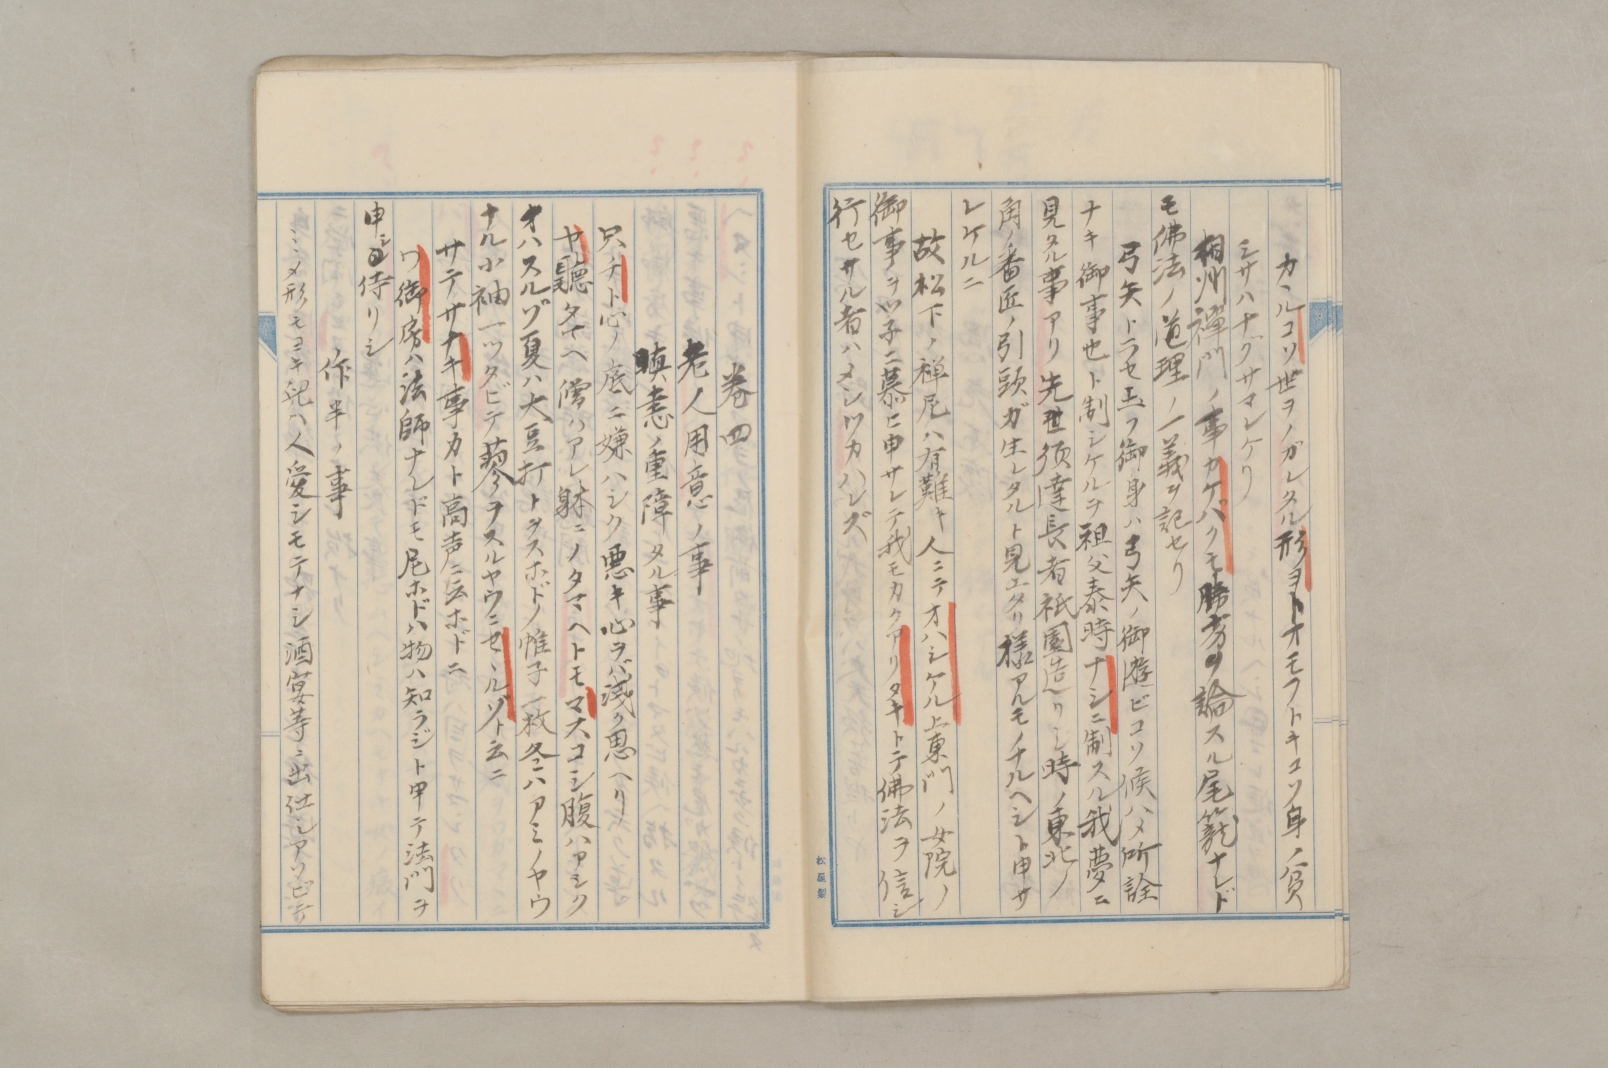 カヽルコソ世ヲノガレタル形ヨトオモフトキコソ身ノ貧
シサハナグサマレケリ
相州禪門ノ事カケバクモ勝劣ヲ論スル尾籠ナレド
モ佛法ノ道理ノ一義ヲ記セリ
弓矢トラセ玉フ御身ハ弓矢ノ御遊ビコソ候ハメ所詮
ナキ御事也ト制シケルヲ祖父泰時ナシニ制スル我夢ニ
見タル事アリ先世須達長者祇園造リシ時ノ東北ノ
角ノ番匠ノ引頭ガ生レタルト見エタリ様アルモノナルヘシト申サ
レケルニ
故松下ノ禅尼ハ有難キ人ニテオハシケル上東門ノ女院ノ
御事ヲツ子ニ慕ヒ申サレテ我モカクアリタキトテ佛法ヲ信シ
行セサル者ハメシツカハレズ
松屋製
巻四
老人用意ノ事
瞋恚ノ重障タル事
只ノナト心ノ底ニ嫌ハシク悪キ心ヲバ浅ク思ヘリ
ヤ聴タマヘ僧ハアレ躰ニノタマヘトモマスコシ腹ハアシク
オハスルゾ夏ハ大豆打トヲスホドノ帷子一枚冬ハアミノヤウ
ナル小袖一ツタビテ蓼ヲスルヤウニセヽルゾト云ニ
サテサナキ事カト高声ニ云ホドニ
ワ御房ハ法師ナレドモ尼ホドハ物ハ知ラジト申テ法門ヲ
申シ侍リシ
作半ノ事
ミメ形モヨキ児ハ人愛シモテナシ酒宴等ニ出仕シアソビテ